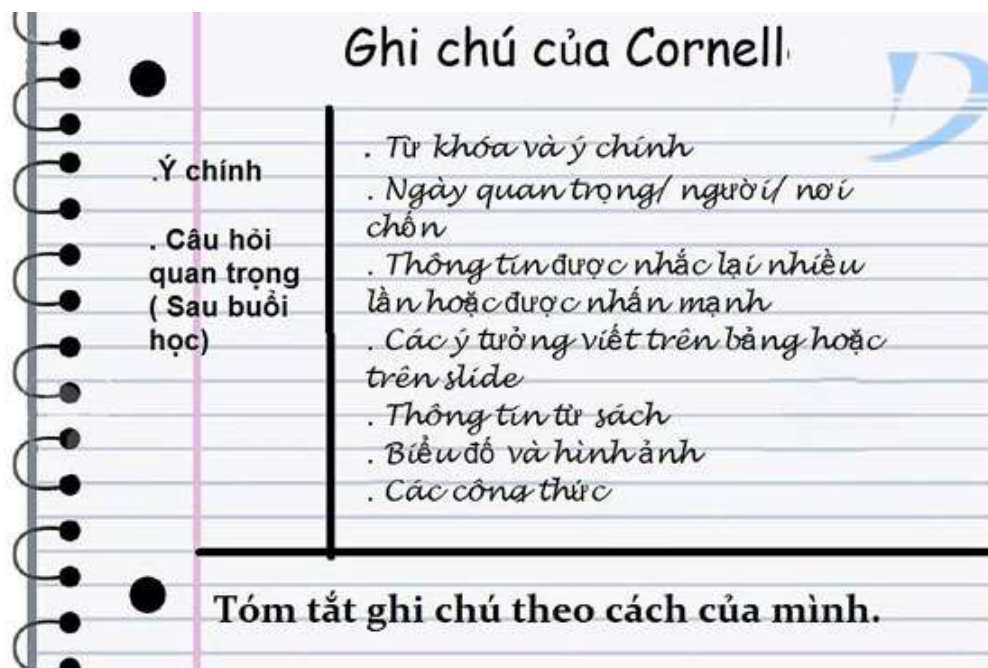 Ghi chú của Cornell
.Ý chính
. Câu hỏi
quan trọng
( Sau buổi
học)
. Từ khóa và ý chính
. Ngày quan trọng/ người/ nơi
chốn
. Thông tin được nhắc lại nhiều
lần hoặc được nhấn mạnh
. Các ý tưởng viết trên bảng hoặc
trên slide
. Thông tin từ sách
. Biểu đồ và hình ảnh
. Các công thức
Tóm tắt ghi chú theo cách của mình.